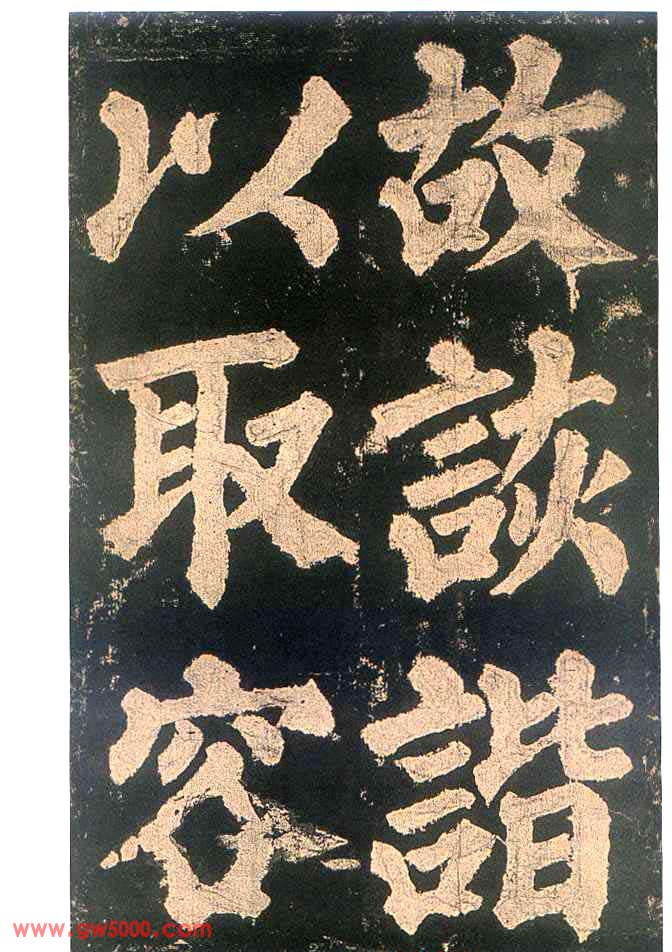 故詼諧
以取容
www.gw5000.com